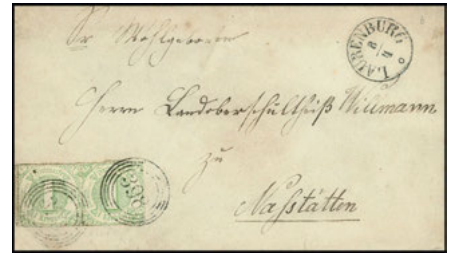 Sr Wohlgeboren
LAURENBURG
8/4
Herrn Landoberschultheiß Willmann
zu
Naßstätten
398